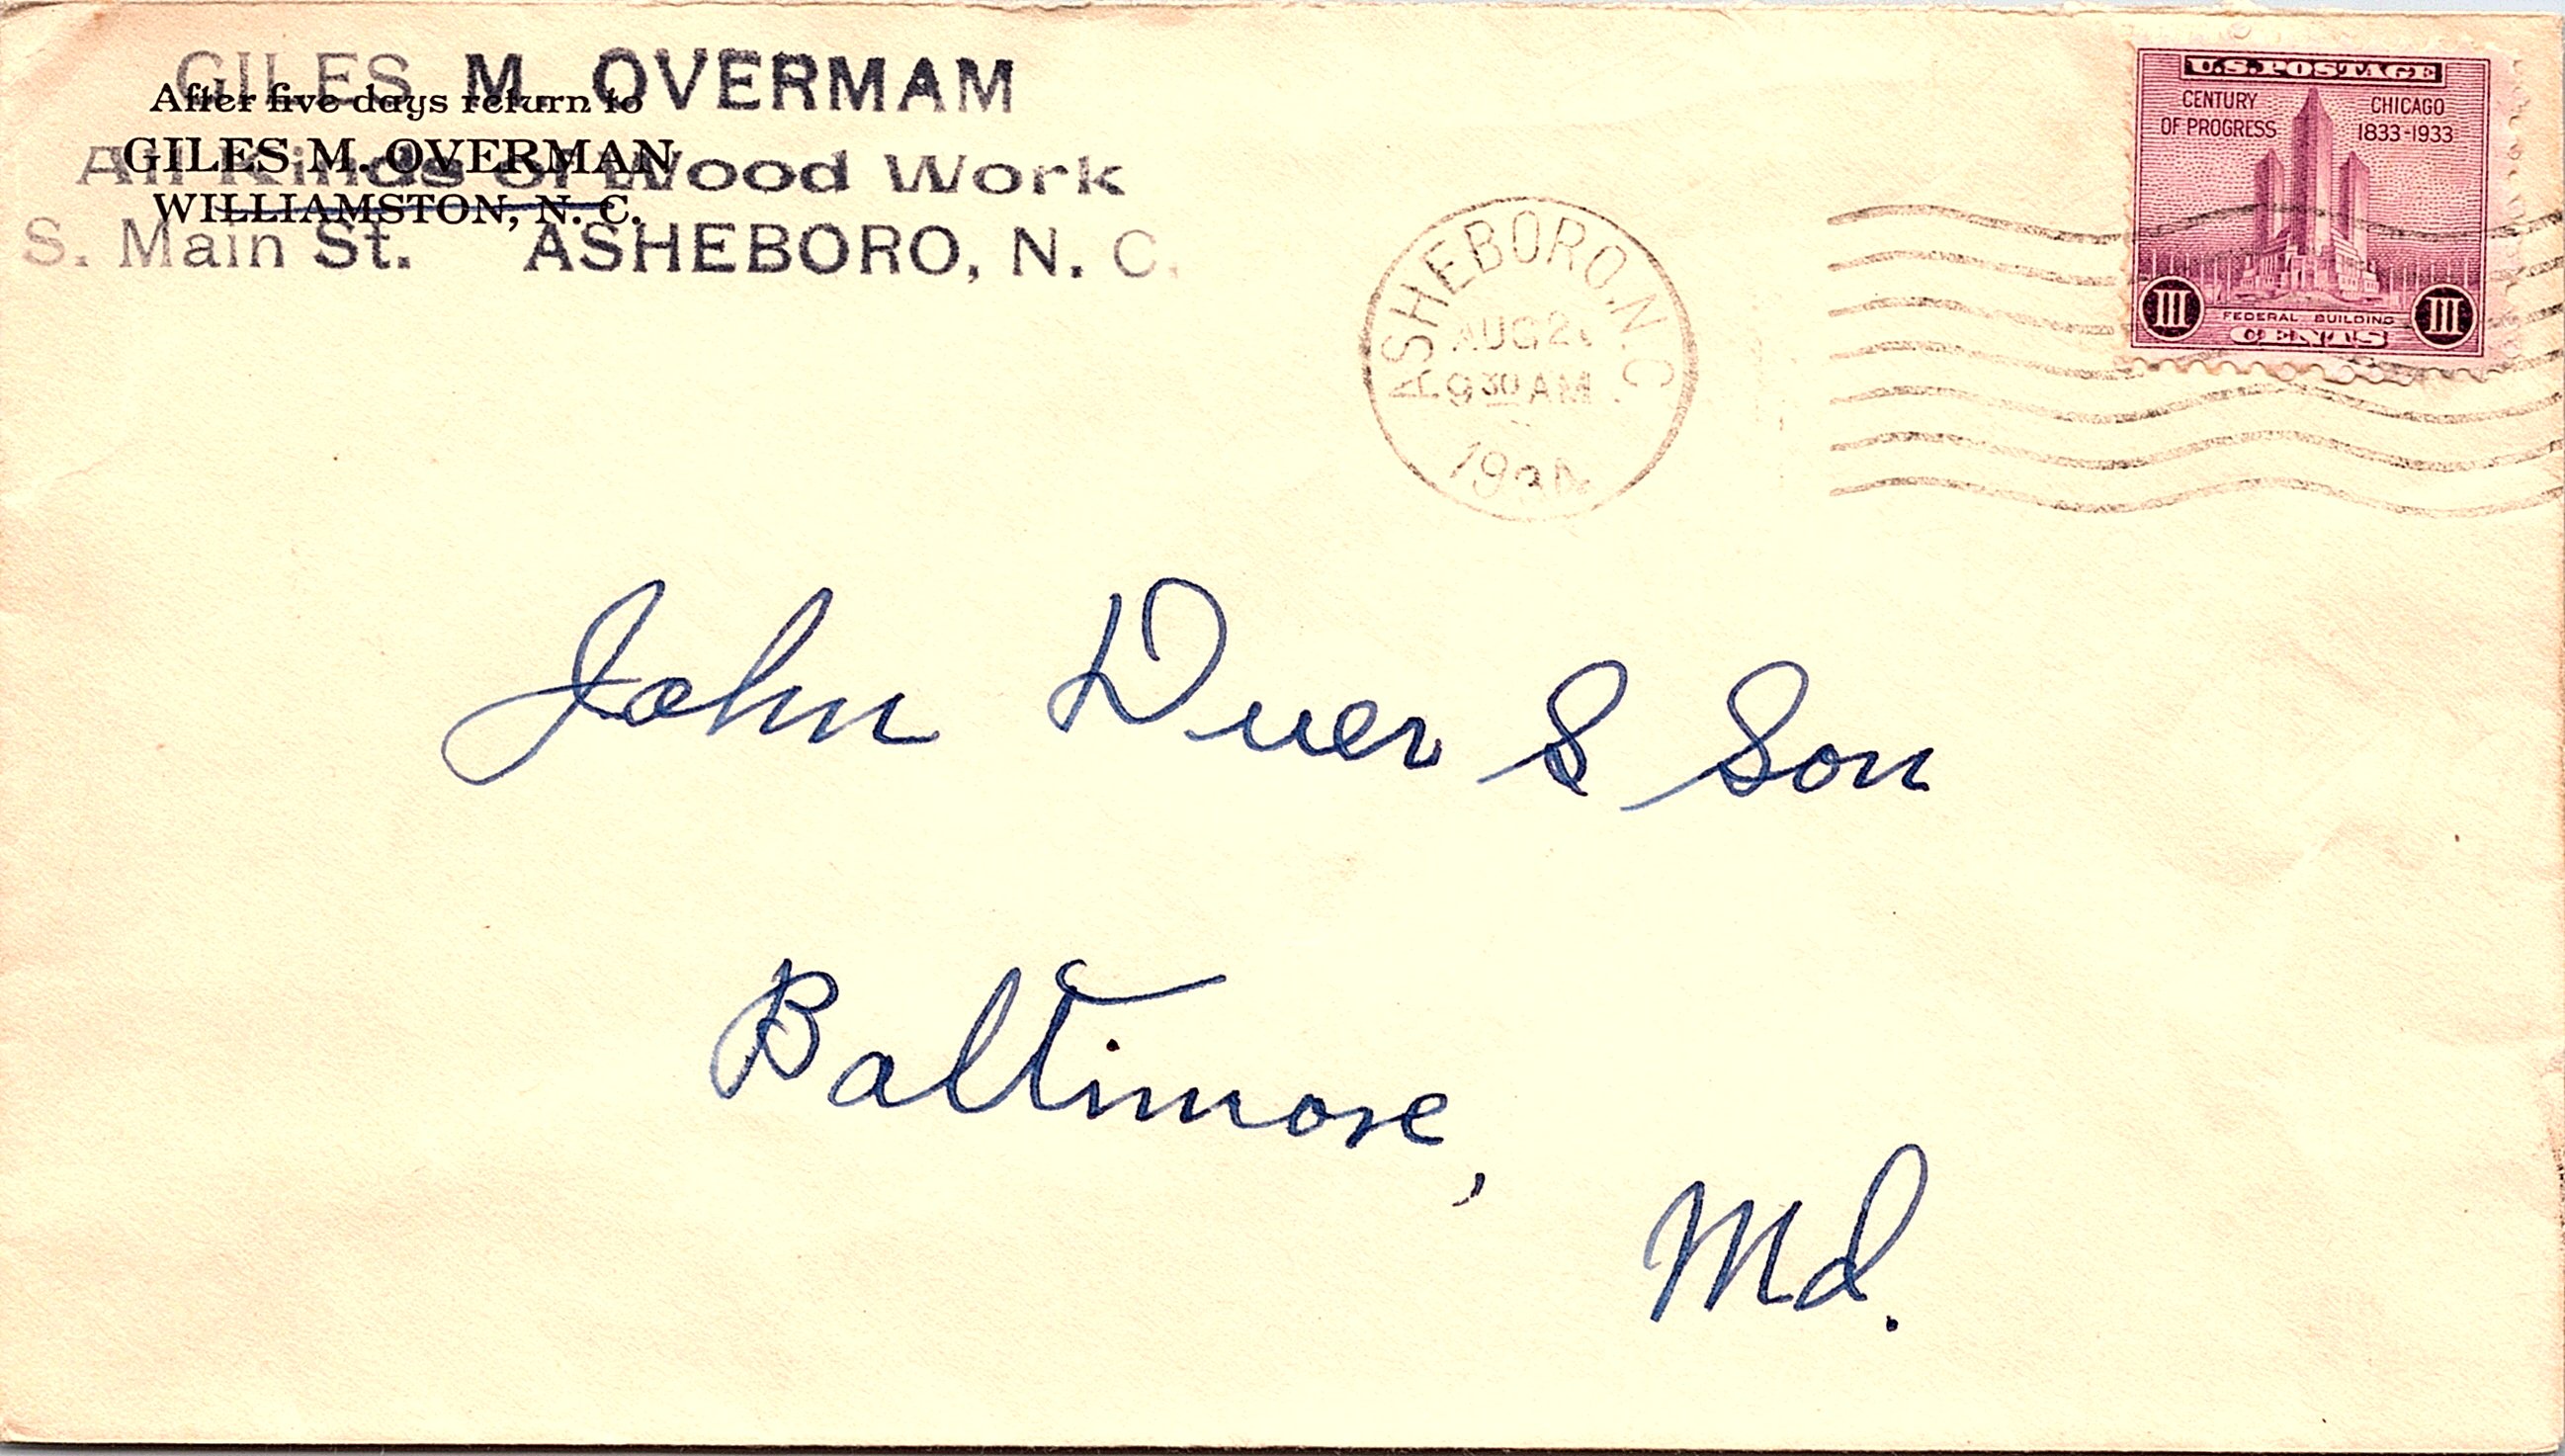 GILES M. OVERMAM
After five days return to
GILES M. OVERMAN
All Kinds of Wood Work
WILLIAMSTON, N. C.
S. Main St. ASHEBORO, N. C.
ASHEBORO, N.C.
AUG 2
9 30 AM
U.S. POSTAGE
CENTURY OF PROGRESS
CHICAGO 1833-1933
FEDERAL BUILDING
III CENTS III
John Duer & Son
Baltimore,
Md.